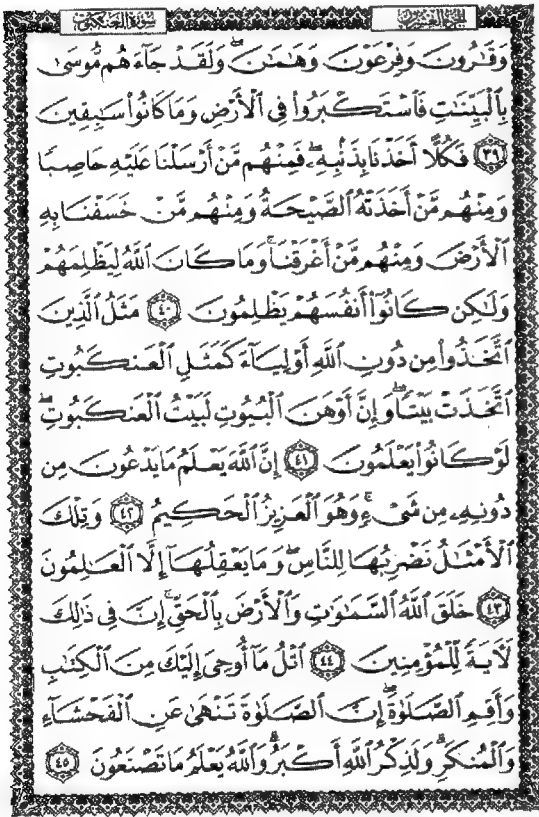 سورة العنكبوت الجزء العشرون
وَقَٰرُونَ وَفِرْعَوْنَ وَهَٰمَٰنَ ۖ وَلَقَدْ جَآءَهُم مُّوسَىٰ
بِٱلْبَيِّنَٰتِ فَٱسْتَكْبَرُوا۟ فِى ٱلْأَرْضِ وَمَا كَانُوا۟ سَٰبِقِينَ
٣٩ فَكُلًّا أَخَذْنَا بِذَنۢبِهِۦ ۖ فَمِنْهُم مَّنْ أَرْسَلْنَا عَلَيْهِ حَاصِبًا
وَمِنْهُم مَّنْ أَخَذَتْهُ ٱلصَّيْحَةُ وَمِنْهُم مَّنْ خَسَفْنَا بِهِ
ٱلْأَرْضَ وَمِنْهُم مَّنْ أَغْرَقْنَا ۚ وَمَا كَانَ ٱللَّهُ لِيَظْلِمَهُمْ
وَلَٰكِن كَانُوٓا۟ أَنفُسَهُمْ يَظْلِمُونَ ٤٠ مَثَلُ ٱلَّذِينَ
ٱتَّخَذُوا۟ مِن دُونِ ٱللَّهِ أَوْلِيَآءَ كَمَثَلِ ٱلْعَنكَبُوتِ
ٱتَّخَذَتْ بَيْتًا ۖ وَإِنَّ أَوْهَنَ ٱلْبُيُوتِ لَبَيْتُ ٱلْعَنكَبُوتِ ۖ
لَوْ كَانُوا۟ يَعْلَمُونَ ٤١ إِنَّ ٱللَّهَ يَعْلَمُ مَا يَدْعُونَ مِن
دُونِهِۦ مِن شَىْءٍ ۚ وَهُوَ ٱلْعَزِيزُ ٱلْحَكِيمُ ٤٢ وَتِلْكَ
ٱلْأَمْثَٰلُ نَضْرِبُهَا لِلنَّاسِ ۖ وَمَا يَعْقِلُهَآ إِلَّا ٱلْعَٰلِمُونَ
٤٣ خَلَقَ ٱللَّهُ ٱلسَّمَٰوَٰتِ وَٱلْأَرْضَ بِٱلْحَقِّ ۚ إِنَّ فِى ذَٰلِكَ
لَءَايَةً لِّلْمُؤْمِنِينَ ٤٤ ٱتْلُ مَآ أُوحِىَ إِلَيْكَ مِنَ ٱلْكِتَٰبِ
وَأَقِمِ ٱلصَّلَوٰةَ ۖ إِنَّ ٱلصَّلَوٰةَ تَنْهَىٰ عَنِ ٱلْفَحْشَآءِ
وَٱلْمُنكَرِ ۗ وَلَذِكْرُ ٱللَّهِ أَكْبَرُ ۗ وَٱللَّهُ يَعْلَمُ مَا تَصْنَعُونَ ٤٥